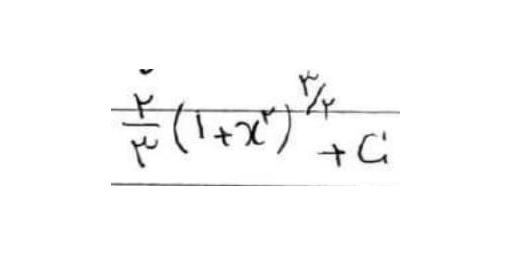 ۲/۳ (۱+x^۲)^۳/۲ + C